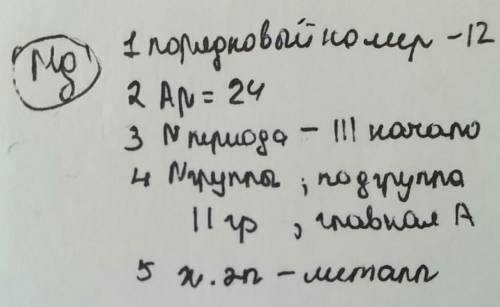 Mg
1 порядковый номер - 12
2 Ar = 24
3 N периода - III начало
4 N группы ; подгруппа
II гр , главная А
5 х.эл - металл